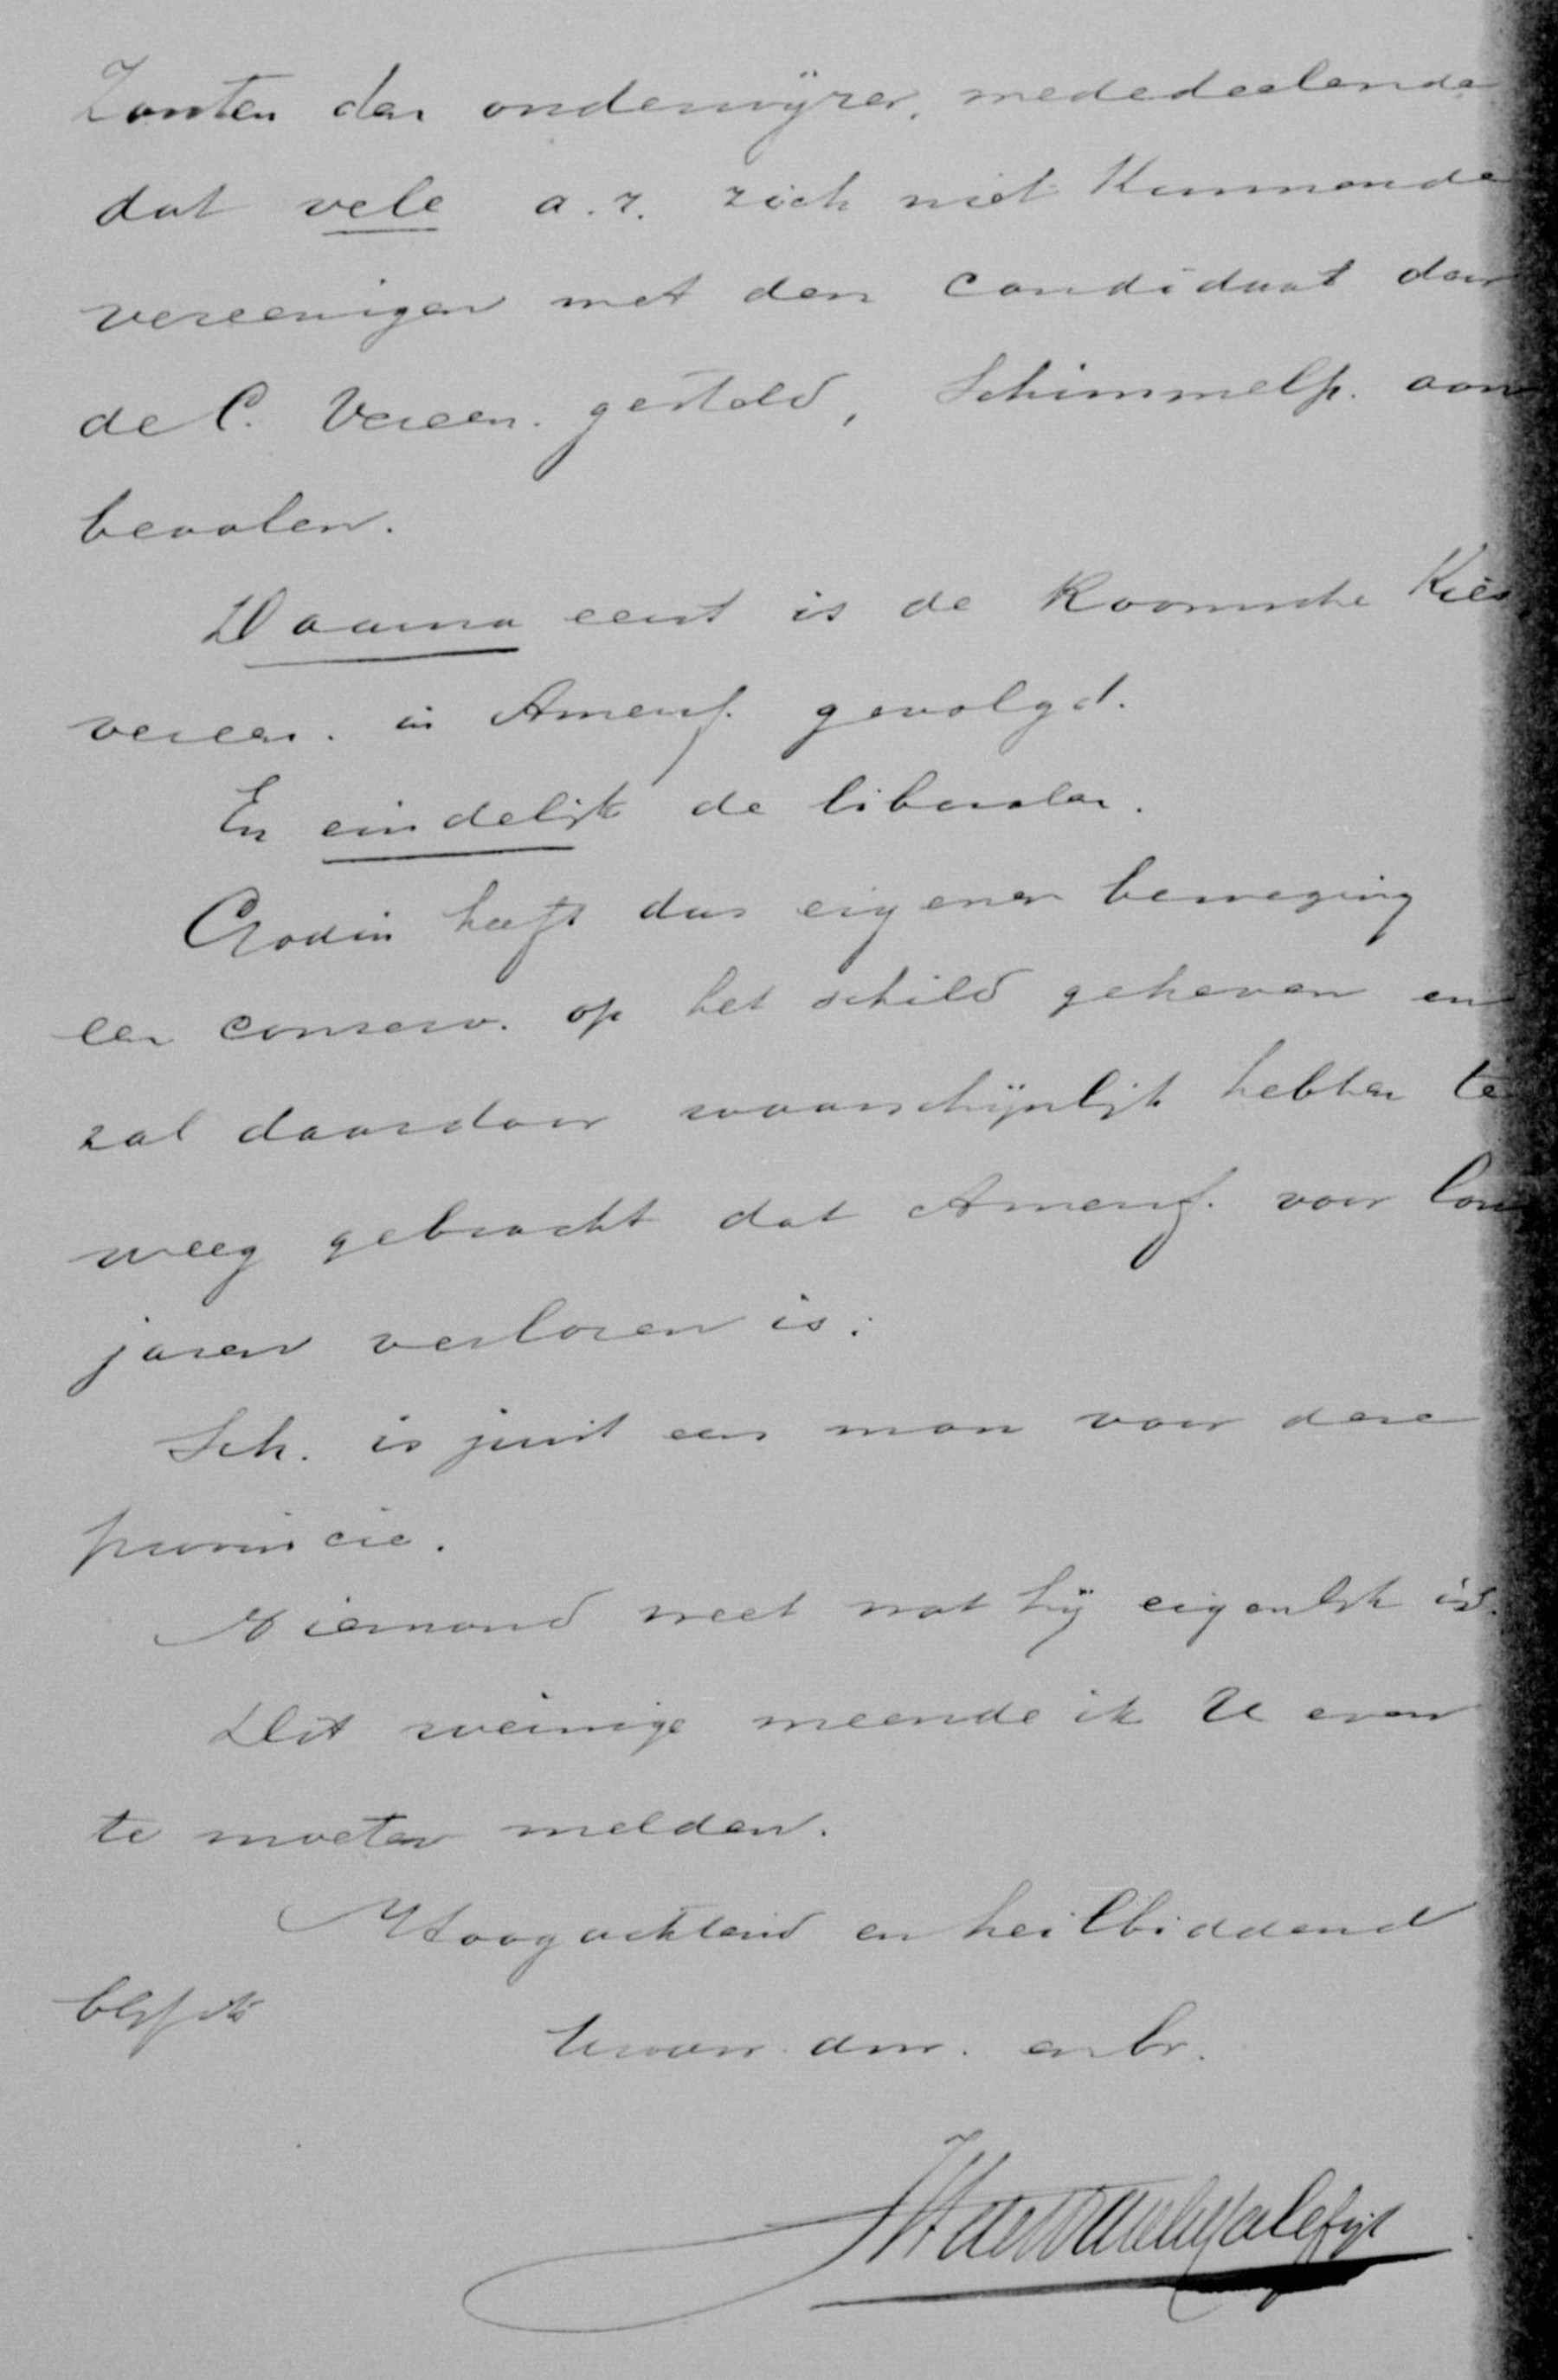 Zonten den onderwijzer, mededeelende
dat vele a. r. zich niet kunnende
vereenigen met den candidaat door
de C. Vereen. gesteld, Schimmelp. aan
bevolen.
Daarna eerst is de Roomsche Kies
vereen. in Amersf. gevolgd.
En eindelijk de liberalen.
heeft dus eigener beweging
een conserv. op het schild geheven en
zal daardoor waarschijnlijk hebben te
weeg gebracht dat Amersf. voor
jaren verloren is.
Sch. is juist een man voor deze
provincie.
Niemand weet wat hij eigenlijk is.
Dit weinige meende ik U even
te moeten melden.
Hoogachtend en heilbiddend
blijf ik
Uwen dnr. en br.